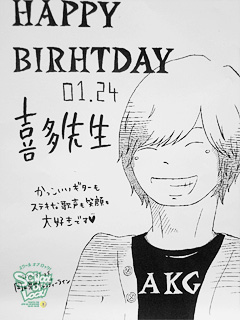 HAPPY
BIRHTDAY
01.24
喜多先生
かっこいいギターも
ステキな歌声も笑顔も
大好きです♥
AKG
SCHOOL
OF
LOCK!